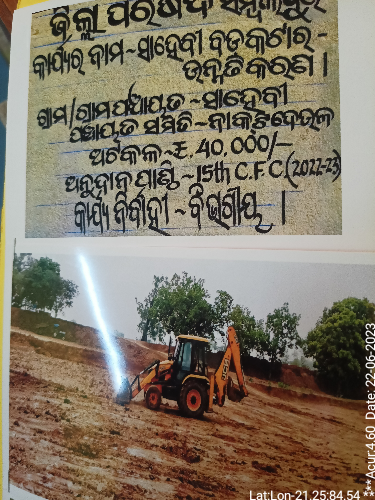 ଜିଲ୍ଲା ପରିଷଦ ସମ୍ବଲପୁର
କାର୍ଯ୍ୟର ନାମ ~ ସାହେବୀ ବଡକଟାର -
ଉନ୍ନତି କରଣ ।
ଗ୍ରାମ/ଗ୍ରାମପଞ୍ଚାୟତ ~ ସାହେବୀ
ପଞ୍ଚାୟତ ସମିତି ~ ନାକଟିଦେଉଳ
ଅଟକଳ ~ ₹. 40,000/-
ଅନୁଦାନ ପାଣ୍ଠି ~ 15th C.F.C.(2022-23)
କାର୍ଯ୍ୟ ନିର୍ବାହୀ ~ ବିଭାଗୀୟ ।
Lat:Lon-21.25:84.54
***Acur:4.60 Date: 22-06-2023